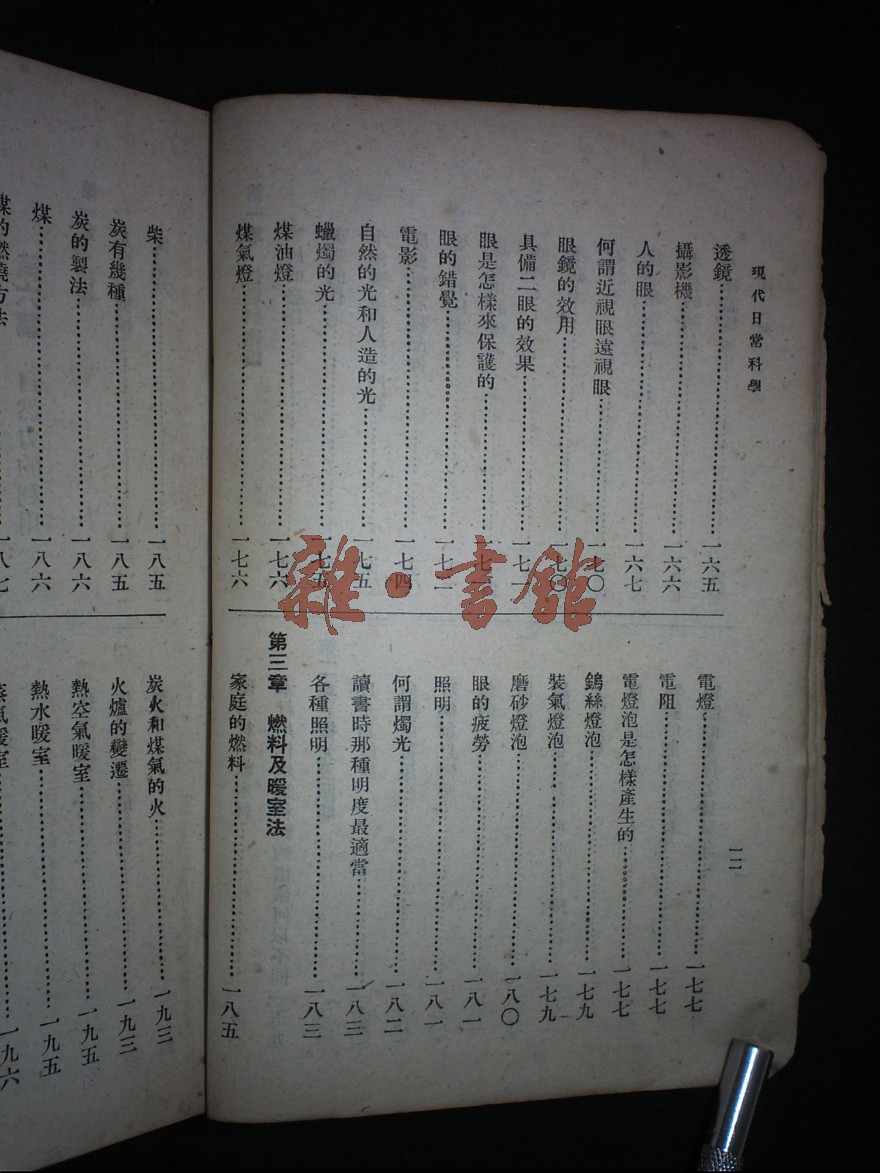 現代日常科學
一二
透鏡……一六五
攝影機……一六六
人的眼……一六七
何謂近視眼遠視眼……一七〇
眼鏡的效用……一七〇
具備二眼的效果……一七一
眼是怎樣來保護的……
眼的錯覺……一七二
電影……一七四
自然的光和人造的光……一七五
蠟燭的光……一七五
煤油燈……一七六
煤氣燈……一七六
電燈……一七七
電阻……一七七
電燈泡是怎樣產生的……一七七
鎢絲燈泡……一七九
裝氣燈泡……一七九
磨砂燈泡……一八〇
眼的疲勞……一八一
照明……一八一
何謂燭光……一八二
讀書時那種明度最適當……一八三
各種照明……一八三
第三章 燃料及暖室法
家庭的燃料……一八五
柴……一八五
炭有幾種……一八五
炭的製法……一八六
煤……一八六
煤的燃燒方法……一八七
炭火和煤氣的火……一九三
火爐的變遷……一九三
熱空氣暖室……一九五
熱水暖室……一九五
蒸氣暖室……一九六
雜·書館